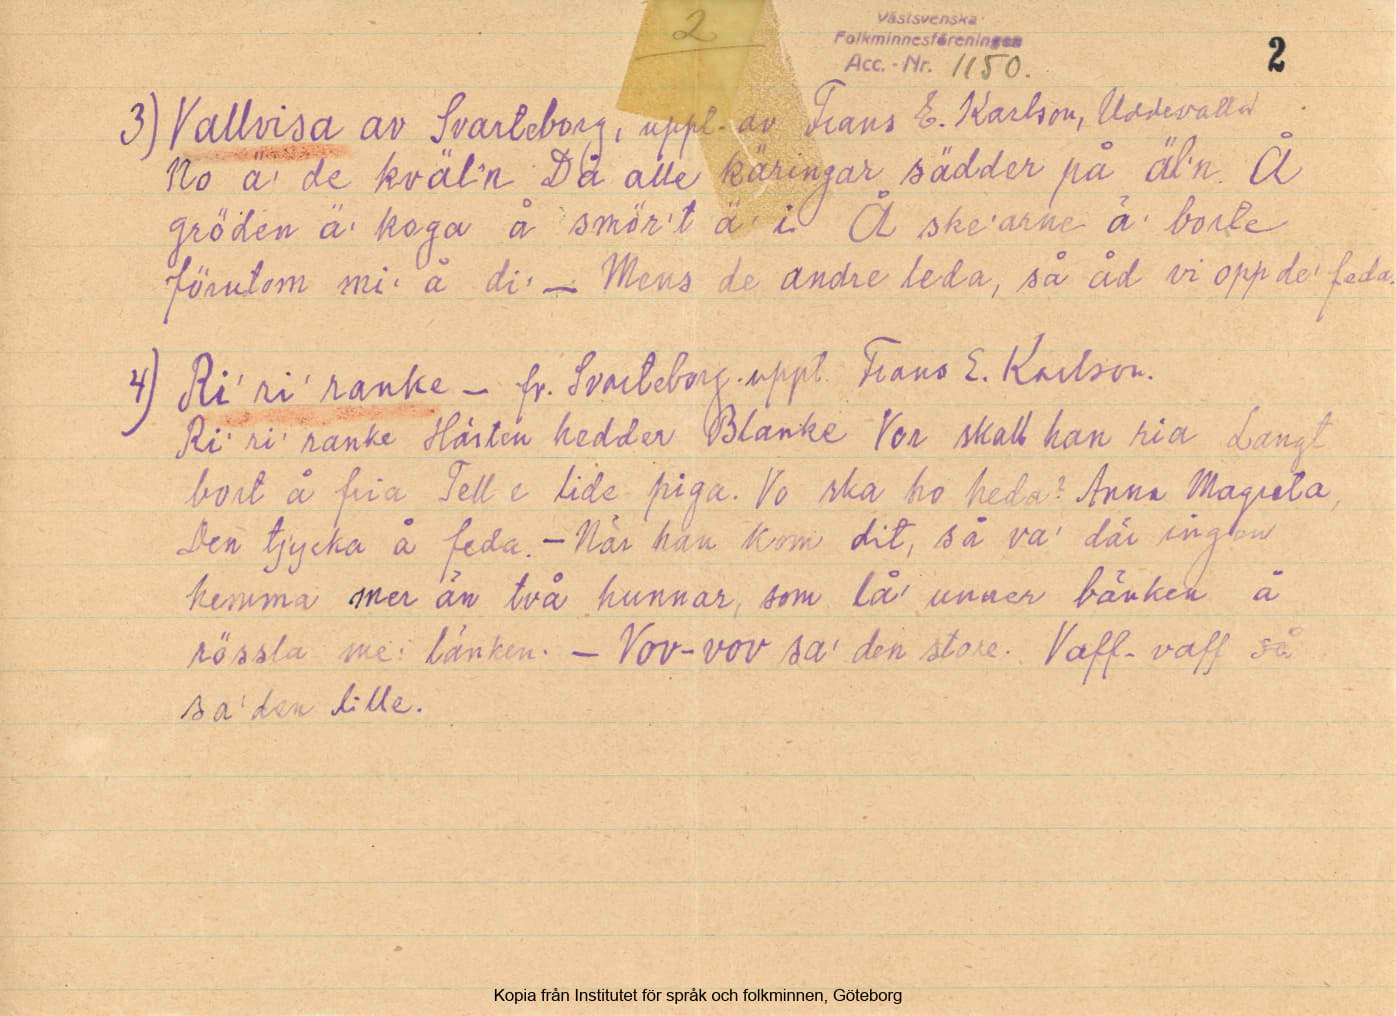 2
Västsvenska
Folkminnesföreningen
Acc. - Nr. 1150.
2
3) Vallvisa av Svarteborg, uppt. av Frans E. Karlson, Uddevalla
No ä' de kväl'n Då alle käringar sädder på äl'n. Å
gröden ä' koga å smör't ä' i. Å ske'arne ä' borte
förutom mi' å di' — Mens de andre leda, så åd vi opp de' feda.
4) Ri' ri' ranke — fr. Svarteborg. uppt. Frans E. Karlson.
Ri' ri' ranke Hästen hedder Blanke Vor skall han ria Langt
bort å fria Tell e lide piga. Vo ska ho heda? Anna Magreta,
Den tjycka å feda. — När han kom dit, så va' där ingen
hemma mer än två hunnar, som lå' unner bänken å
rössla me' länken. — Vov-vov sa' den store. Vaff-vaff så
sa' den lille.
Kopia från Institutet för språk och folkminnen, Göteborg